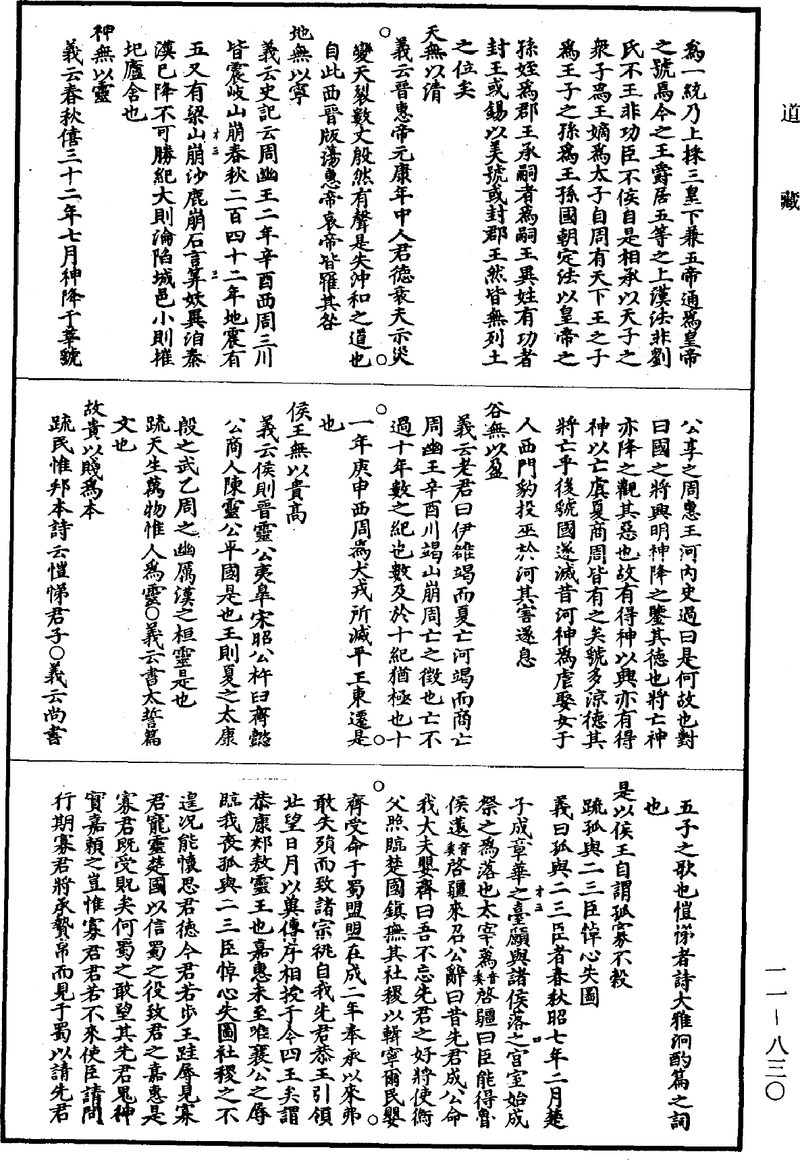 道藏
為一統乃上採三皇下兼五帝通為皇帝
之號焉今之王爵居五等之上漢法非劉
氏不王非功臣不侯自是相承以天子之
衆子爲王嫡爲太子自周有天下王之子
爲王子之孫爲王孫國朝定法以皇帝之
孫姪爲郡王承嗣者爲嗣王異姓有功者
封王或錫以美號或封郡王然皆無列土
之位矣
天無以清
義云晉惠帝元康年中人君德衰天示災
變天裂數丈殷然有聲是失沖和之道也
自此西晉版蕩惠帝哀帝皆罹其咎
地無以寧
義云史記云周幽王二年辛酉西周三川
皆震岐山崩春秋二百四十二年地震有
五又有梁山崩沙鹿崩石言筭妖異洎秦
漢已降不可勝紀大則淪陷城邑小則摧
圮廬舍也
神無以靈
義云春秋僖三十二年七月神降于莘號
公享之周惠王河內史過曰是何故也對
曰國之將興明神降之鑒其德也將亡神
亦降之觀其惡也故有得神以興亦有得
神以亡虞夏商周皆有之矣號多涼德其
將亡乎後號國遂滅昔河神爲虐娶女于
人西門豹投巫於河其害遂息
谷無以盈
義云老君曰伊雒竭而夏亡河竭而商亡
周幽王辛酉川竭山崩周亡之徵也亡不
過十年數之紀也數及於十紀猶極也十
一年庚申西周爲犬戎所滅平王東遷是
也
侯王無以貴高
義云侯則晉靈公夷皐宋昭公杵臼齊懿
公商人陳靈公平國是也王則夏之太康
殷之武乙周之幽厲漢之桓靈是也
疏天生萬物惟人爲靈○義云書太誓篇
文也
故貴以賤爲本
疏民惟邦本詩云愷悌君子○義云尚書
五子之歌也愷悌者詩大雅泂酌篇之詞
也
是以侯王自謂孤寡不穀
疏孤與二三臣悼心失圖
義曰孤與二三臣者春秋昭七年二月楚
子成章華之臺願與諸侯落之宫室始成
祭之爲落也太宰薳啓疆曰臣能得魯
侯薳啓疆來召公辭曰昔先君成公命
我大夫嬰齊曰吾不忘先君之好將使衡
父照臨楚國鎮撫其社稷以輯寧爾民嬰
齊受命于蜀盟盟在成二年奉承以來弗
敢失隕而致諸宗祧自我先君恭王引領
北望日月以冀傳序相授于今四王矣謂
恭康郟敖靈王也嘉惠未至唯襄公之辱
臨我喪孤與二三臣悼心失圖社稷之不
遑況能懷思君德今君若步玉趾辱見寡
君寵靈楚國以信蜀之役致君之嘉惠是
寡君既受貺矣何蜀之敢望其先君鬼神
實嘉賴之豈惟寡君君若不來使臣請問
行期寡君將承贄帛而見于蜀以請先君
一一－八三〇